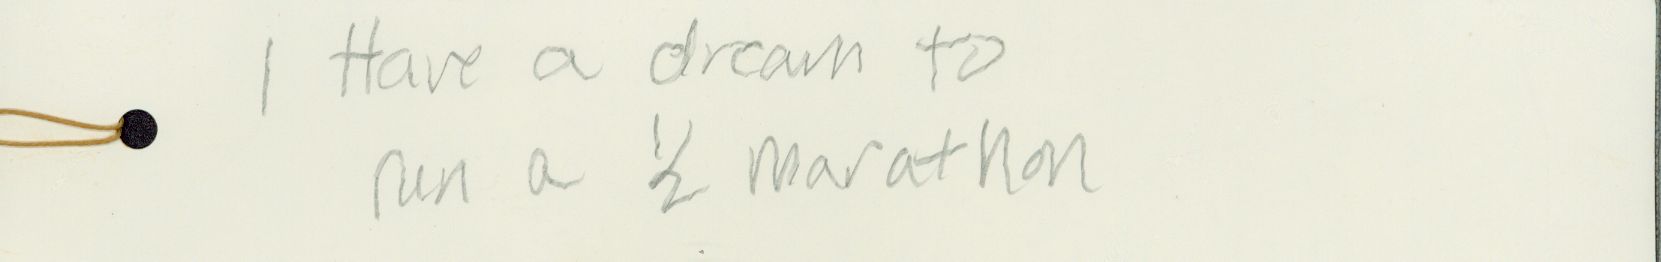 I Have a dream to
run a ½ marathon